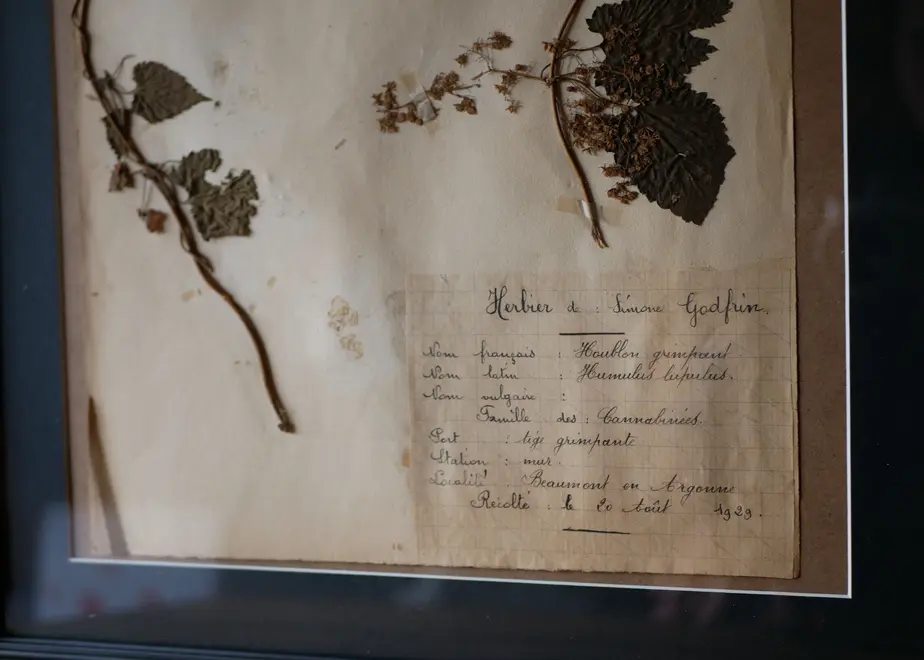 Herbier de : Simone Godfrin.
Nom français : Houblon grimpant
Nom latin : Humulus lupulus.
Nom vulgaire :
Famille des : Cannabinées.
Port : tige grimpante
Station : mur.
Localité : Beaumont en Argonne
Récolté : le 20 Août 1929.